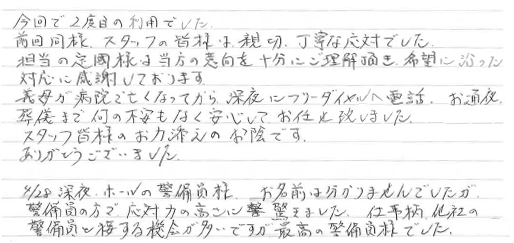 今回で2度目の利用でした。
前回同様、スタッフの皆様は親切、丁寧な応対でした。
担当の定國様は当方の意向を十分にご理解頂き、希望に沿った
対応に感謝しております。
義母が病院で亡くなってから、深夜にフリーダイヤルへ電話、お通夜、
葬儀まで何の不安もなく安心してお任せ致しました。
スタッフ皆様のお力添えのお陰です。
ありがとうございました。
4/28 深夜、ホールの警備員様、お名前は分かりませんでしたが、
警備員の方で応対力の高さに驚きました。仕事柄、他社の
警備員と接する機会が多いですが最高の警備員様でした。